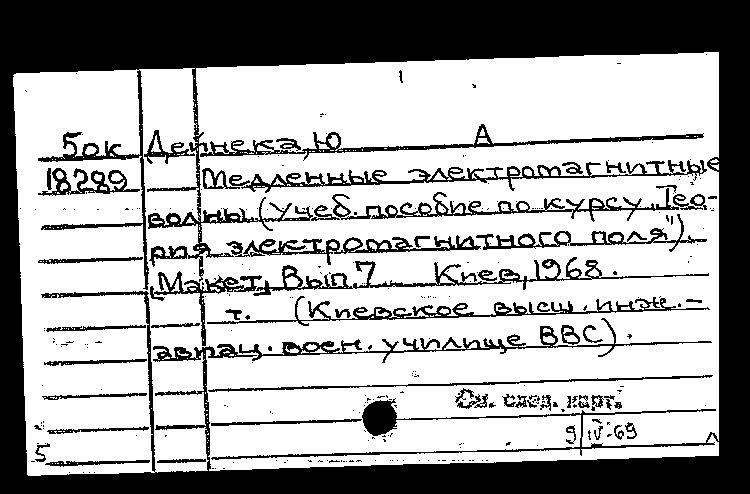 5ок Дейнека, Ю А
18289 Медленные электромагнитные
волны (Учеб. пособие по курсу „Тео-
рия электромагнитного поля").
[Макет] Вып. 7 Киев, 1968.
т. (Киевское высш. инж.-
авиац. воен. училище ВВС).
См. след. карт.
9/IV-69
5